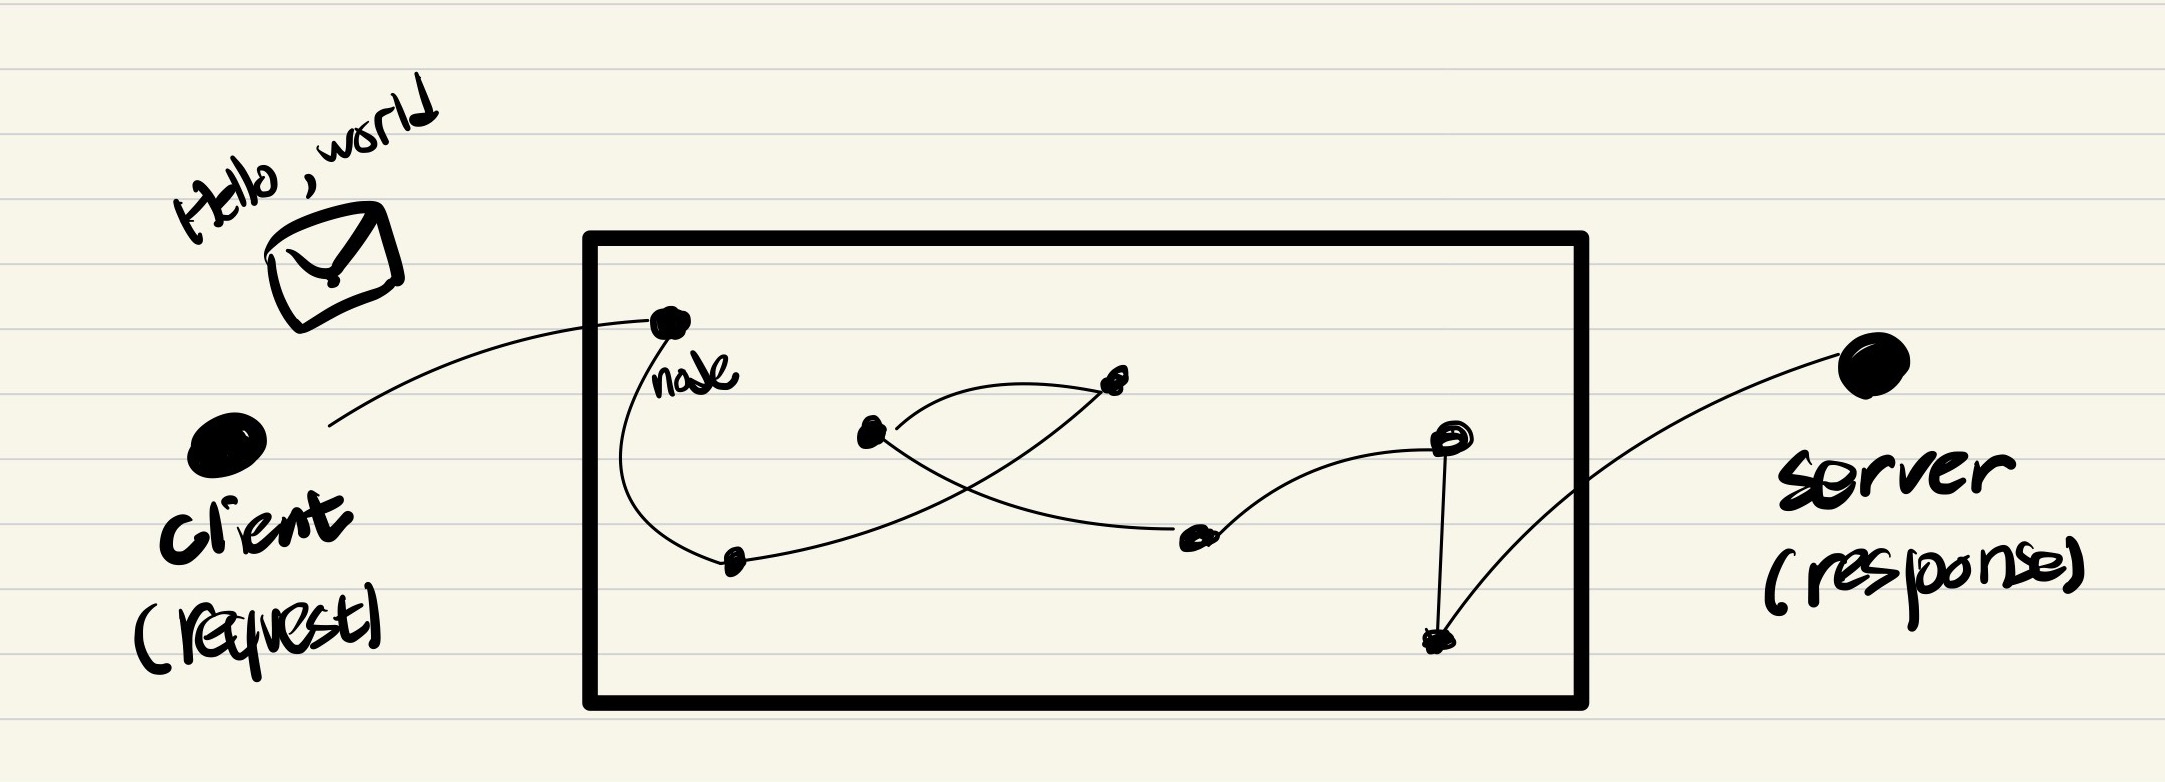 Hello, world
node
client
(request)
server
(response)